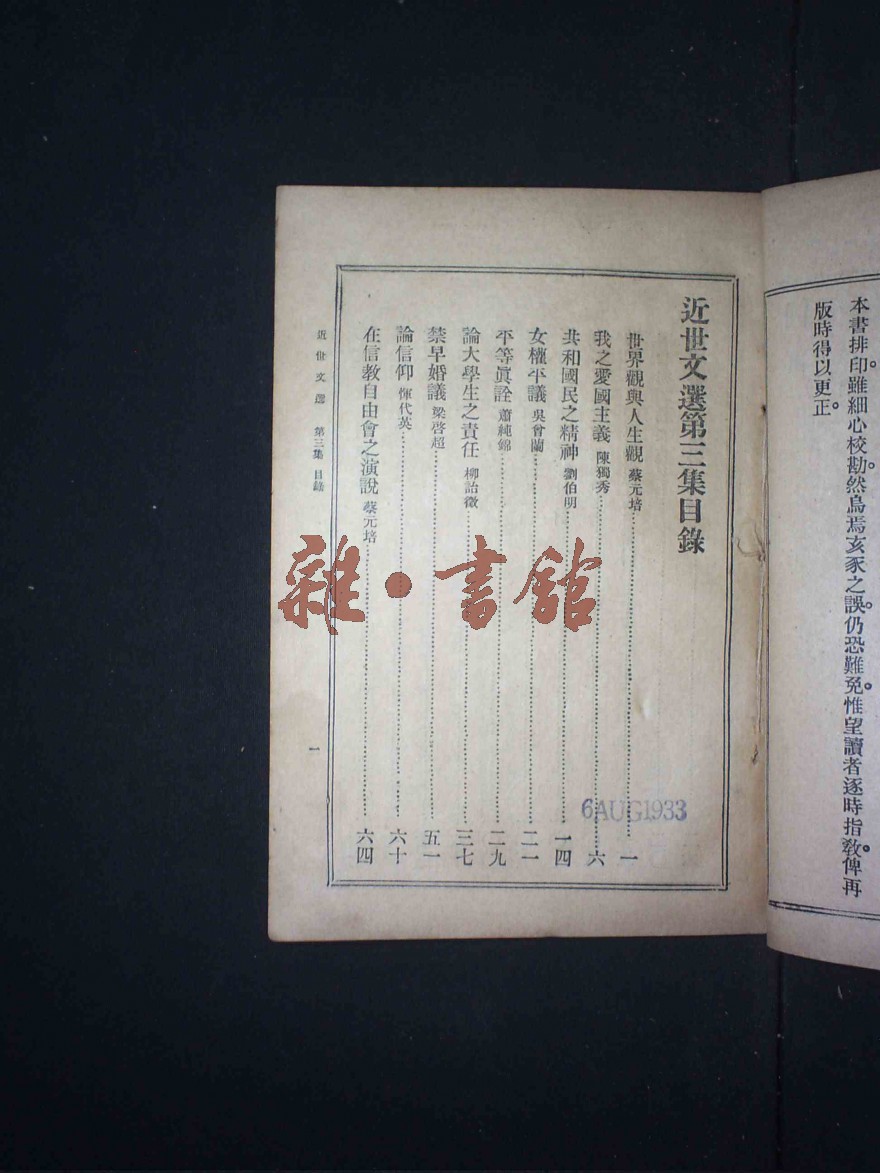 本書排印雖細心校勘。然烏焉亥豕之誤。仍恐難免。惟望讀者逐時指教。俾再
版時得以更正。
近世文選第三集目錄
世界觀與人生觀 蔡元培 一
我之愛國主義 陳獨秀 六
共和國民之精神 劉伯明 一四
女權平議 吳曾蘭 二一
平等眞詮 蕭純錦 二九
論大學生之責任 柳詒徵 三七
禁早婚議 梁啓超 五一
論信仰 惲代英 六十
在信教自由會之演說 蔡元培 六四
近世文選 第三集 目錄
一
6 AUG 1933
雜·書館